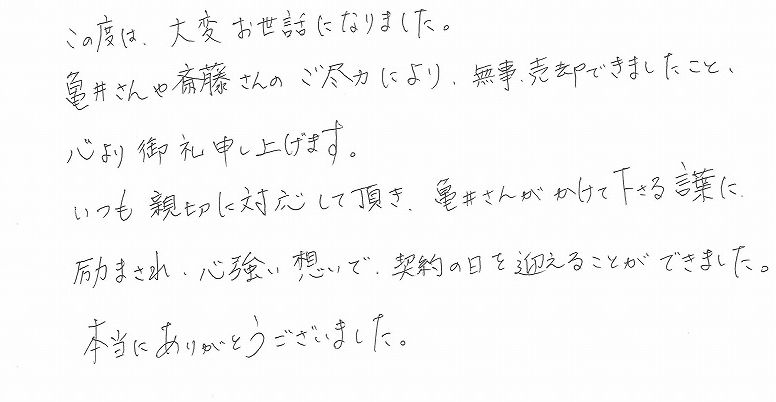 この度は、大変お世話になりました。
亀井さんや斎藤さんのご尽力により、無事、売却できましたこと、
心より御礼申し上げます。
いつも親切に対応して頂き、亀井さんがかけて下さる言葉に、
励まされ、心強い想いで、契約の日を迎えることができました。
本当にありがとうございました。